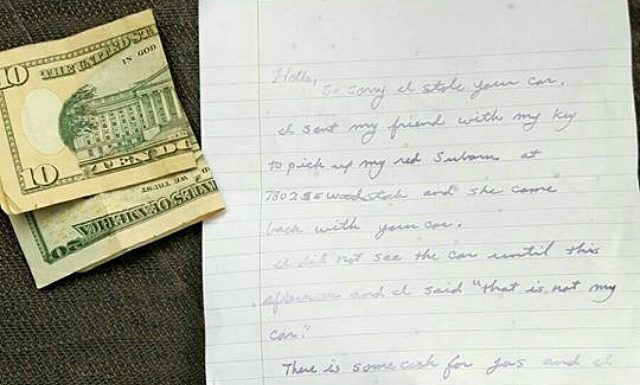 10
THE UNITED ST
IN GOD
10
TEN DO
WE TRUST
STATES OF AMERICA
20
Hello,
So sorry I stole your car.
I sent my friend with my key
to pick up my red Subaru at
7802 SE Woodstock and she came
back with your car.
I did not see the car until this
afternoon and I said "that is not my
car."
There is some cash for gas and I